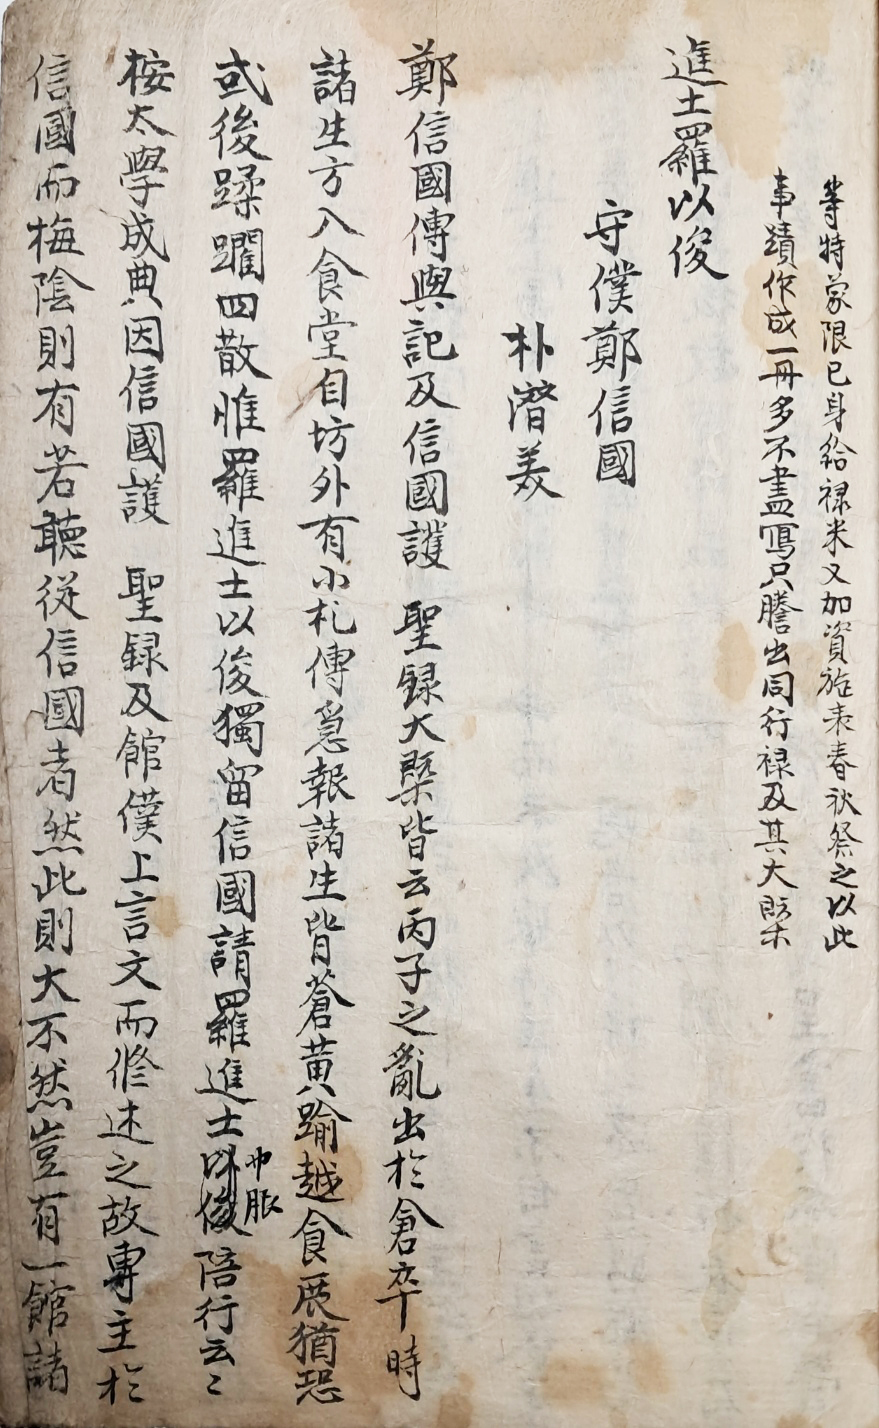 等特蒙限已身給禄米又加資旌表春秋祭之以此
事蹟作成一冊多不盡寫只謄出同行禄及其大槩
進士羅以俊
守僕鄭信國
朴潛美
鄭信國傳與記及信國護 聖録大槩皆云丙子之亂出於倉卒時
諸生方入食堂自坊外有小札傳急報諸生皆蒼黄踰越食床猶恐
或後蹂躙四散惟羅進士以俊獨留信國請羅進士以俊巾服陪行云〻
桉太學成典因信國護 聖録及館僕上言文而修述之故專主於
信國而梅陰則有若聽從信國者然此則大不然豈有一館諸